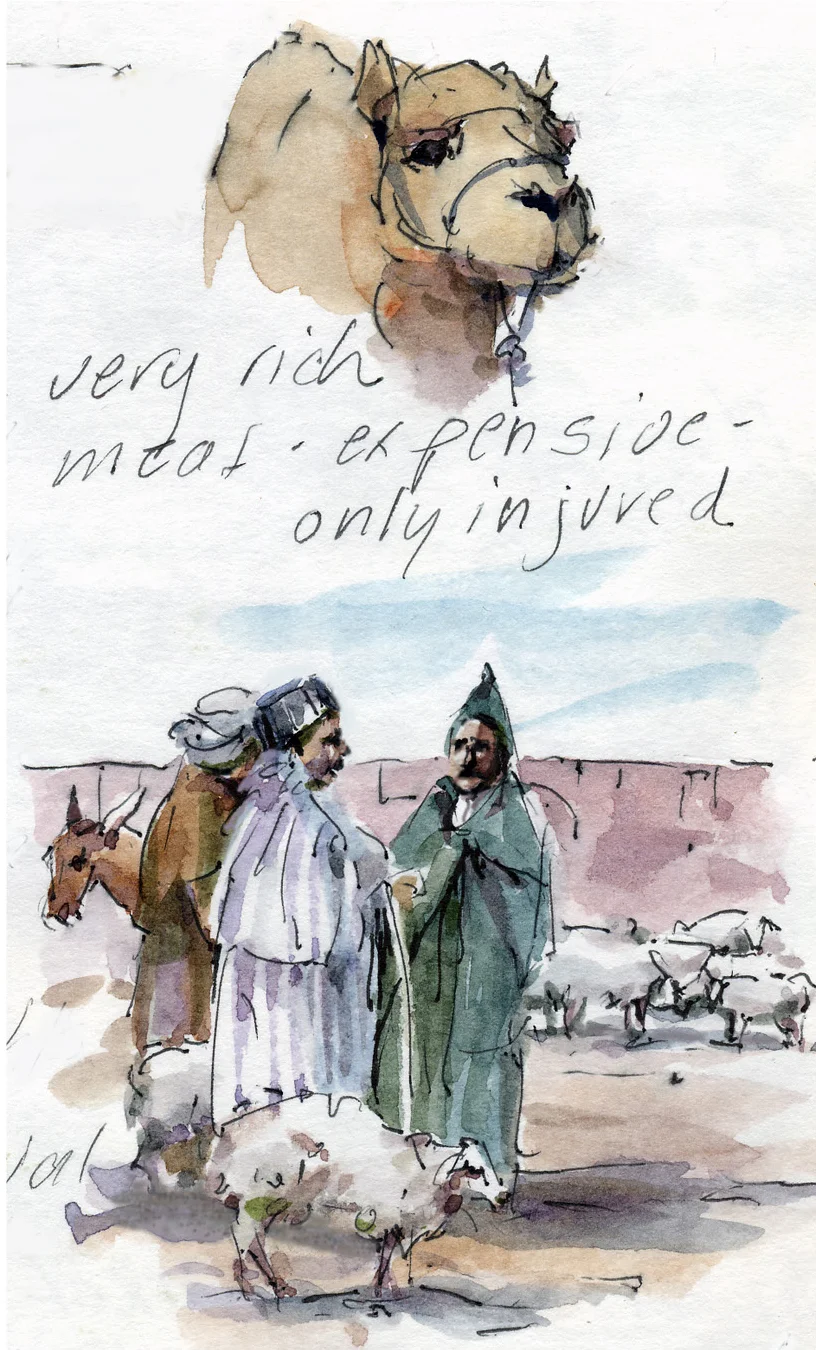 very rich
meat - expensive -
only injured